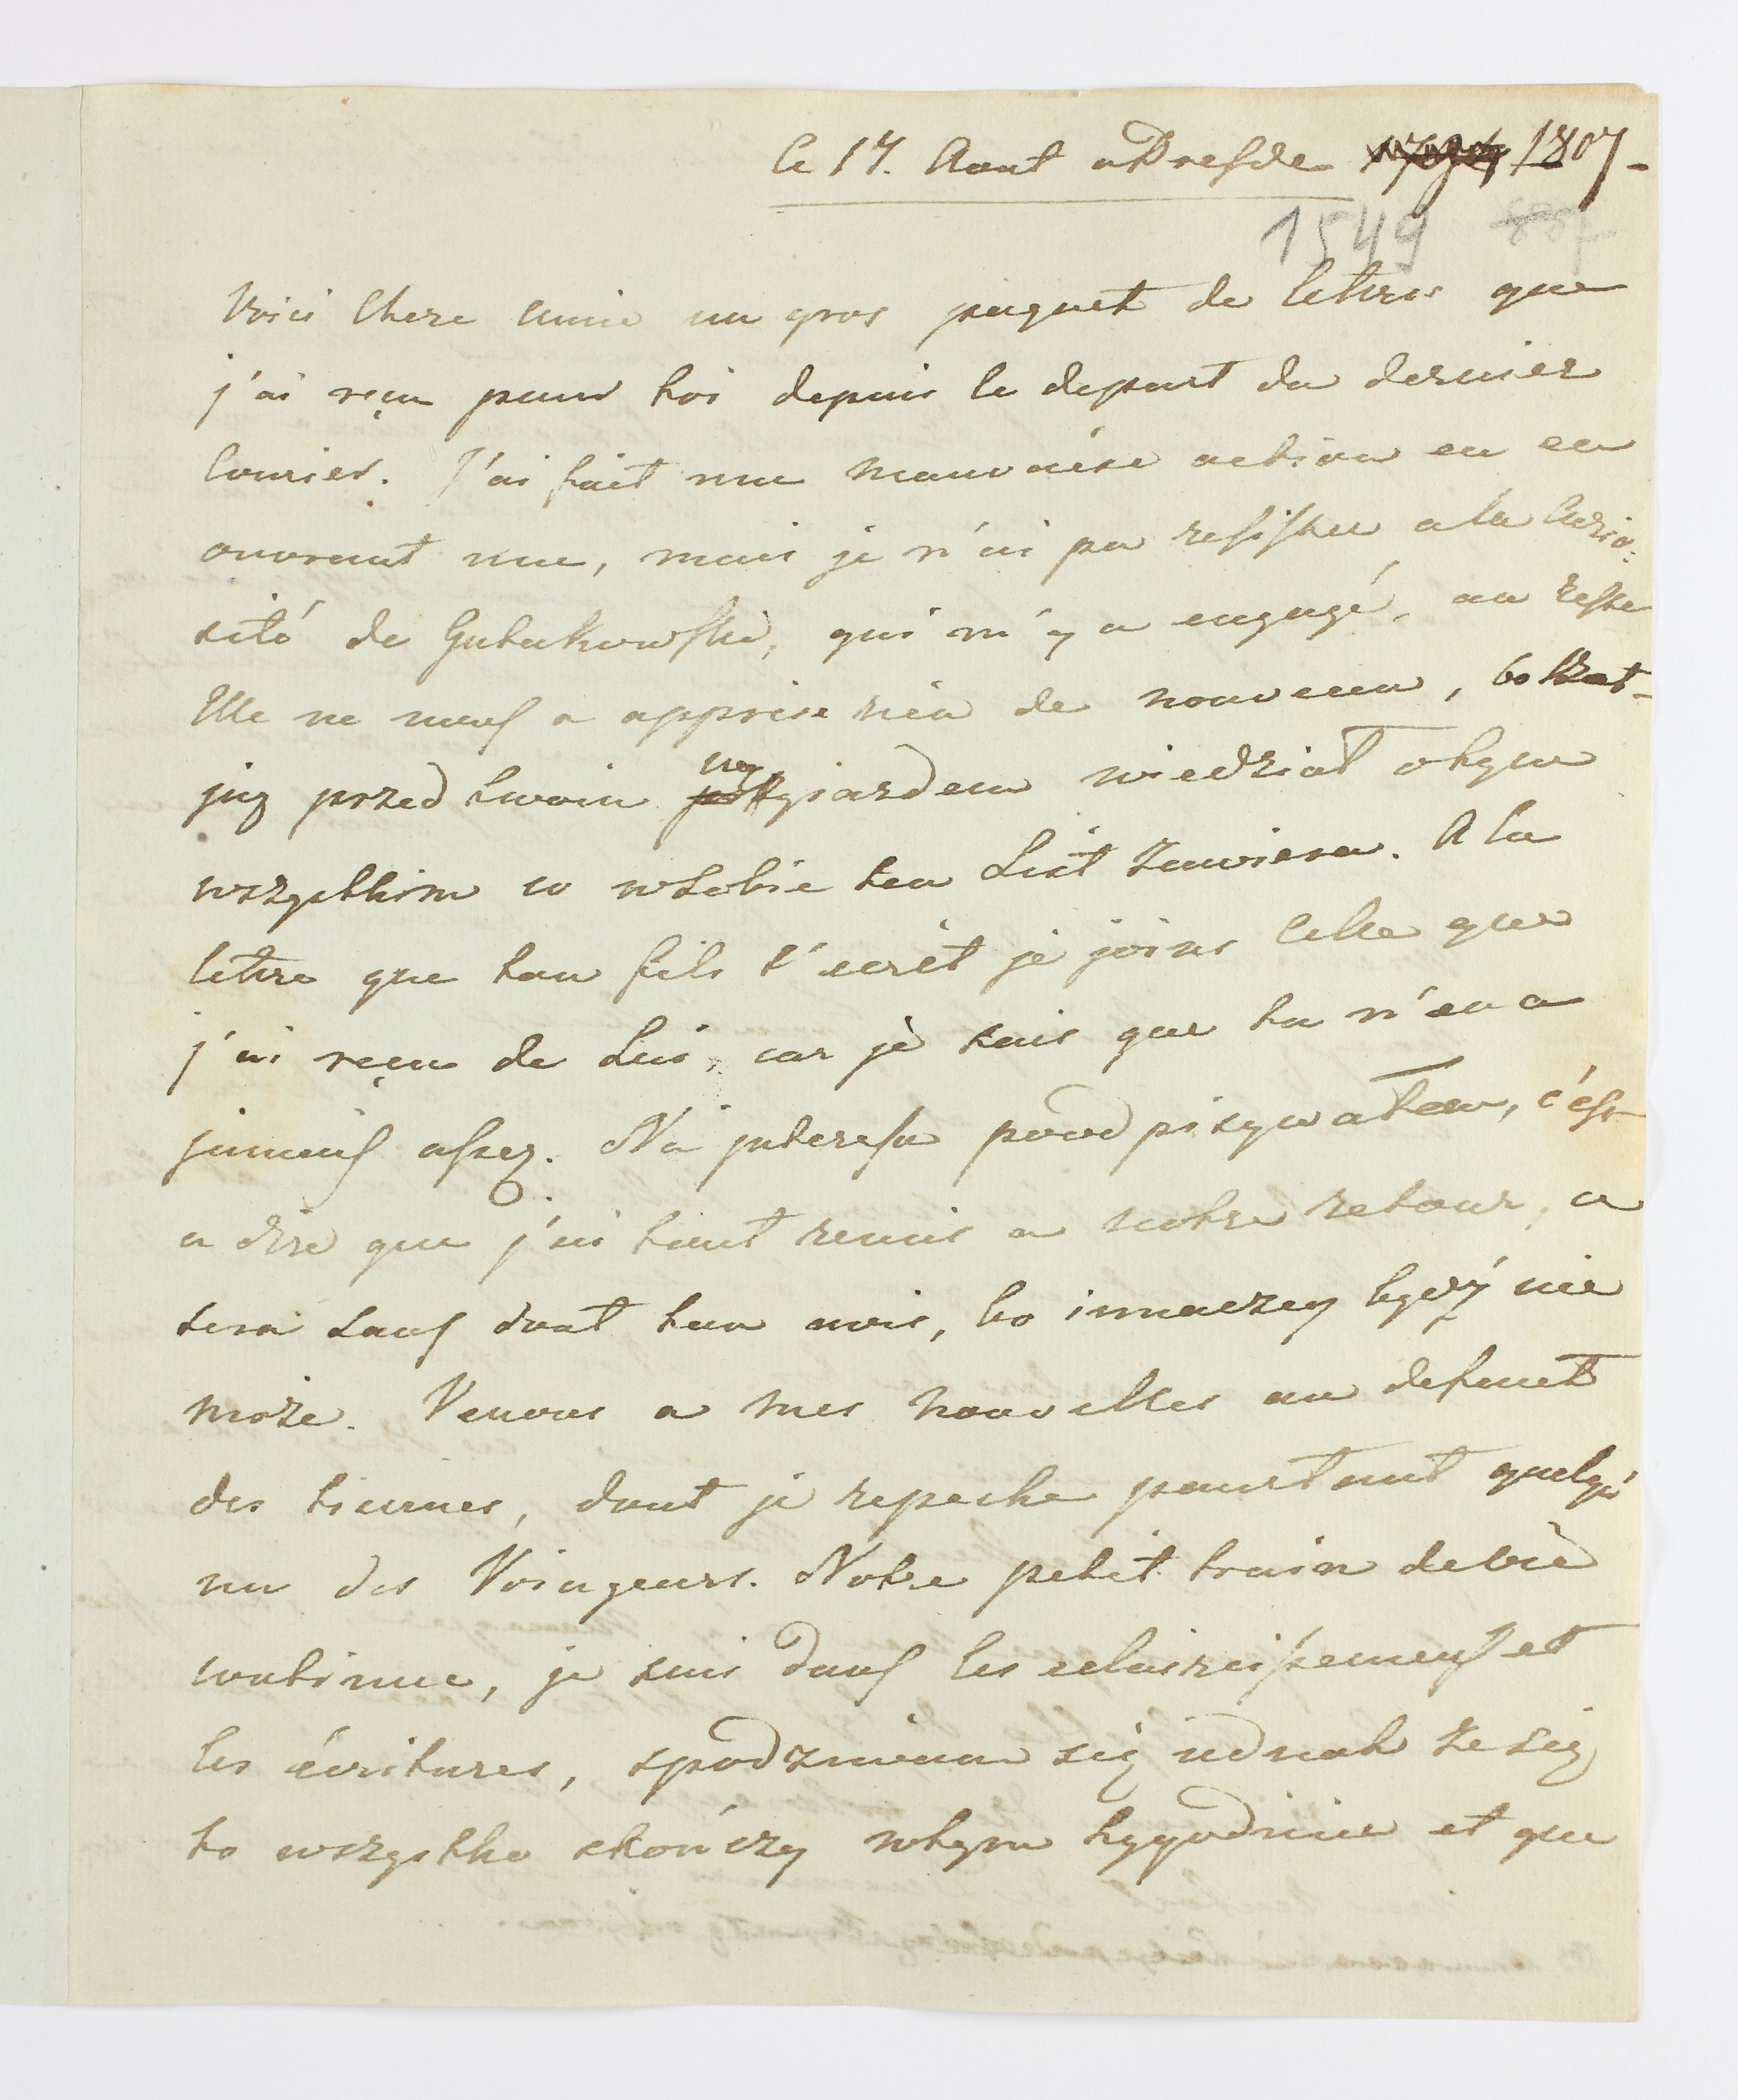 le 14. Aout a Dresde 1807-
1549
Voici Chere Amie un gros paquet de lettres que
j'ai reçu pour toi depuis le depart du dernier
Courier. J'ai fait une mauvaise action en en
ouvrant une, mais je n'ai pu resister a la Curio:
sité de Gutakowski, qui m'y a engagé, au reste
Elle ne nous a apprise rien de nouveau, bo
juz przed twoim wyjazdem wiedział otym
wszystkim co wsobie ten List zawiera. A la
lettre que ton fils t'ecrit je joins Celle que
j'ai reçu de Lui, car je sais que tu n'en a
jamais assez. Na interessa poodpisywałem, c'est
a dire que j'ai tout remis a notre retour, a
sera sauf dvat ten nois, bo innaczey bydź nie
może. Venons a mes nouvelles au defaut
des tiennes, dont je repeche pourtant quelqu'
un des Voiageurs. Notre petit train de vie
continue, je suis dans les eclaircissemens et
les écritures, spodziwam się iednak że się
to wszystko skończy wtym tygodniu et que